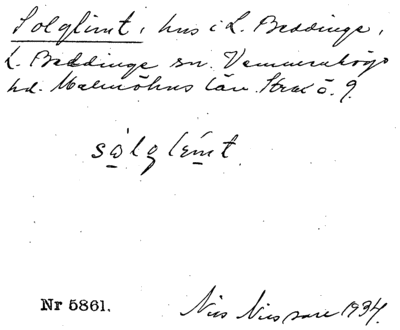 Solglimt, hus i L. Beddinge,
L. Beddinge sn. Vemmenhögs
hd. Malmöhus län.
sòlglémt
Nr 5861.
Nils Nilsson 1934.